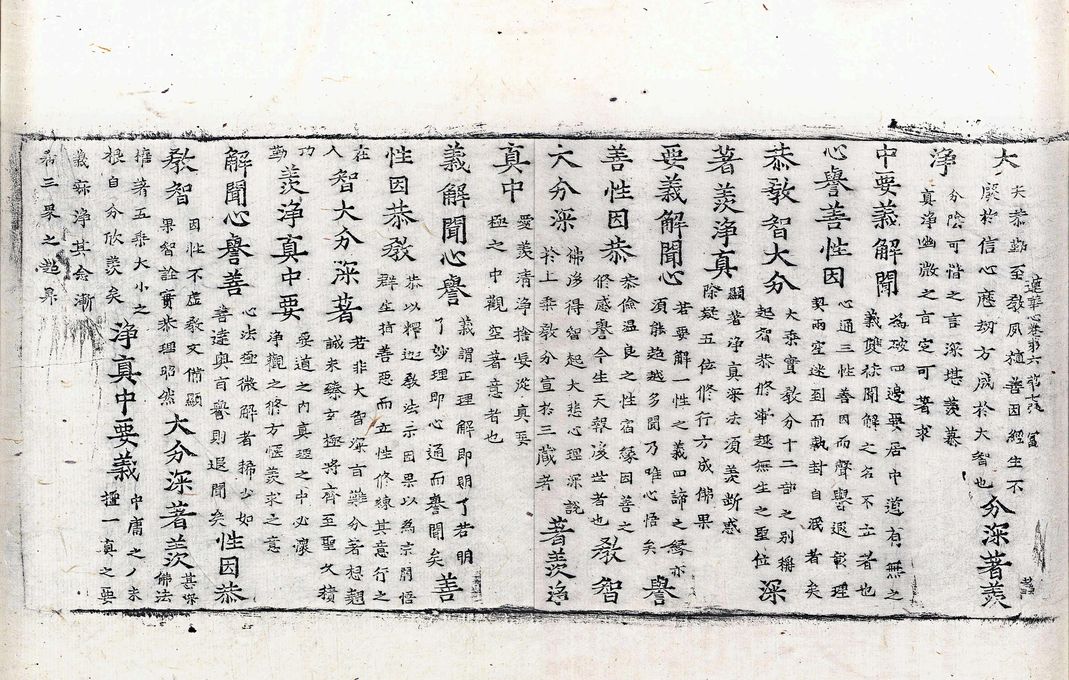 大
夫恭勤至敎夙植善因經生不
廢於信心歷劫方成於大智也
分深著羨
淨
分陰可惜之言深堪羨慕
真淨幽微之言定可著求
中要義解聞
為破四邊要居中道有無之
義雙袪聞解之名不立者也
心譽善性因
心通三性善因而聲譽遐彰理
契兩空迷到而執封自泯者矣
恭敎智大分
大乘實敎分十二部之別稱
起智恭修常趣無生之聖位
深
著羨淨真
顯著淨真深法須羨斷惑
除疑五位修行方成佛果
要義解聞心
若要解一性之義四諦之緣亦
須能越多聞乃唯心悟矣
譽
善性因恭
恭儉温良之性宿緣因善之
修感譽令生天報後世者也
敎智
大分深
佛得智起大悲心理深說
於上乘敎分宣於三藏者
著羨淨
真中
愛羨清淨捨妄從真要
極之中觀空著意者也
義解聞心譽
義謂正理解即明了若明
了妙理即心通而譽聞矣
善
性因恭敎
恭以釋迦敎法示因果以為宗開悟
群生持善惡而立性修練其意行之
在
入
智大分深著
若非大智深百難分著想翹
誠未臻玄極將齊至聖久積
功
勤
羨淨真中要
要道之內真理之中必懷
淨觀之修方愜羨求之意
解聞心譽善
心法極微解者掃少如
善達奧百譽則退聞矣
性因恭
敎智
因性不虛敎文備顯
果智詮實恭理昭然
大分深著羨
甚深
佛法
著五乘大小之
根自分欣羨矣
淨真中要義
中庸之求
極一真之要
義淨其念漸
三界之超昇